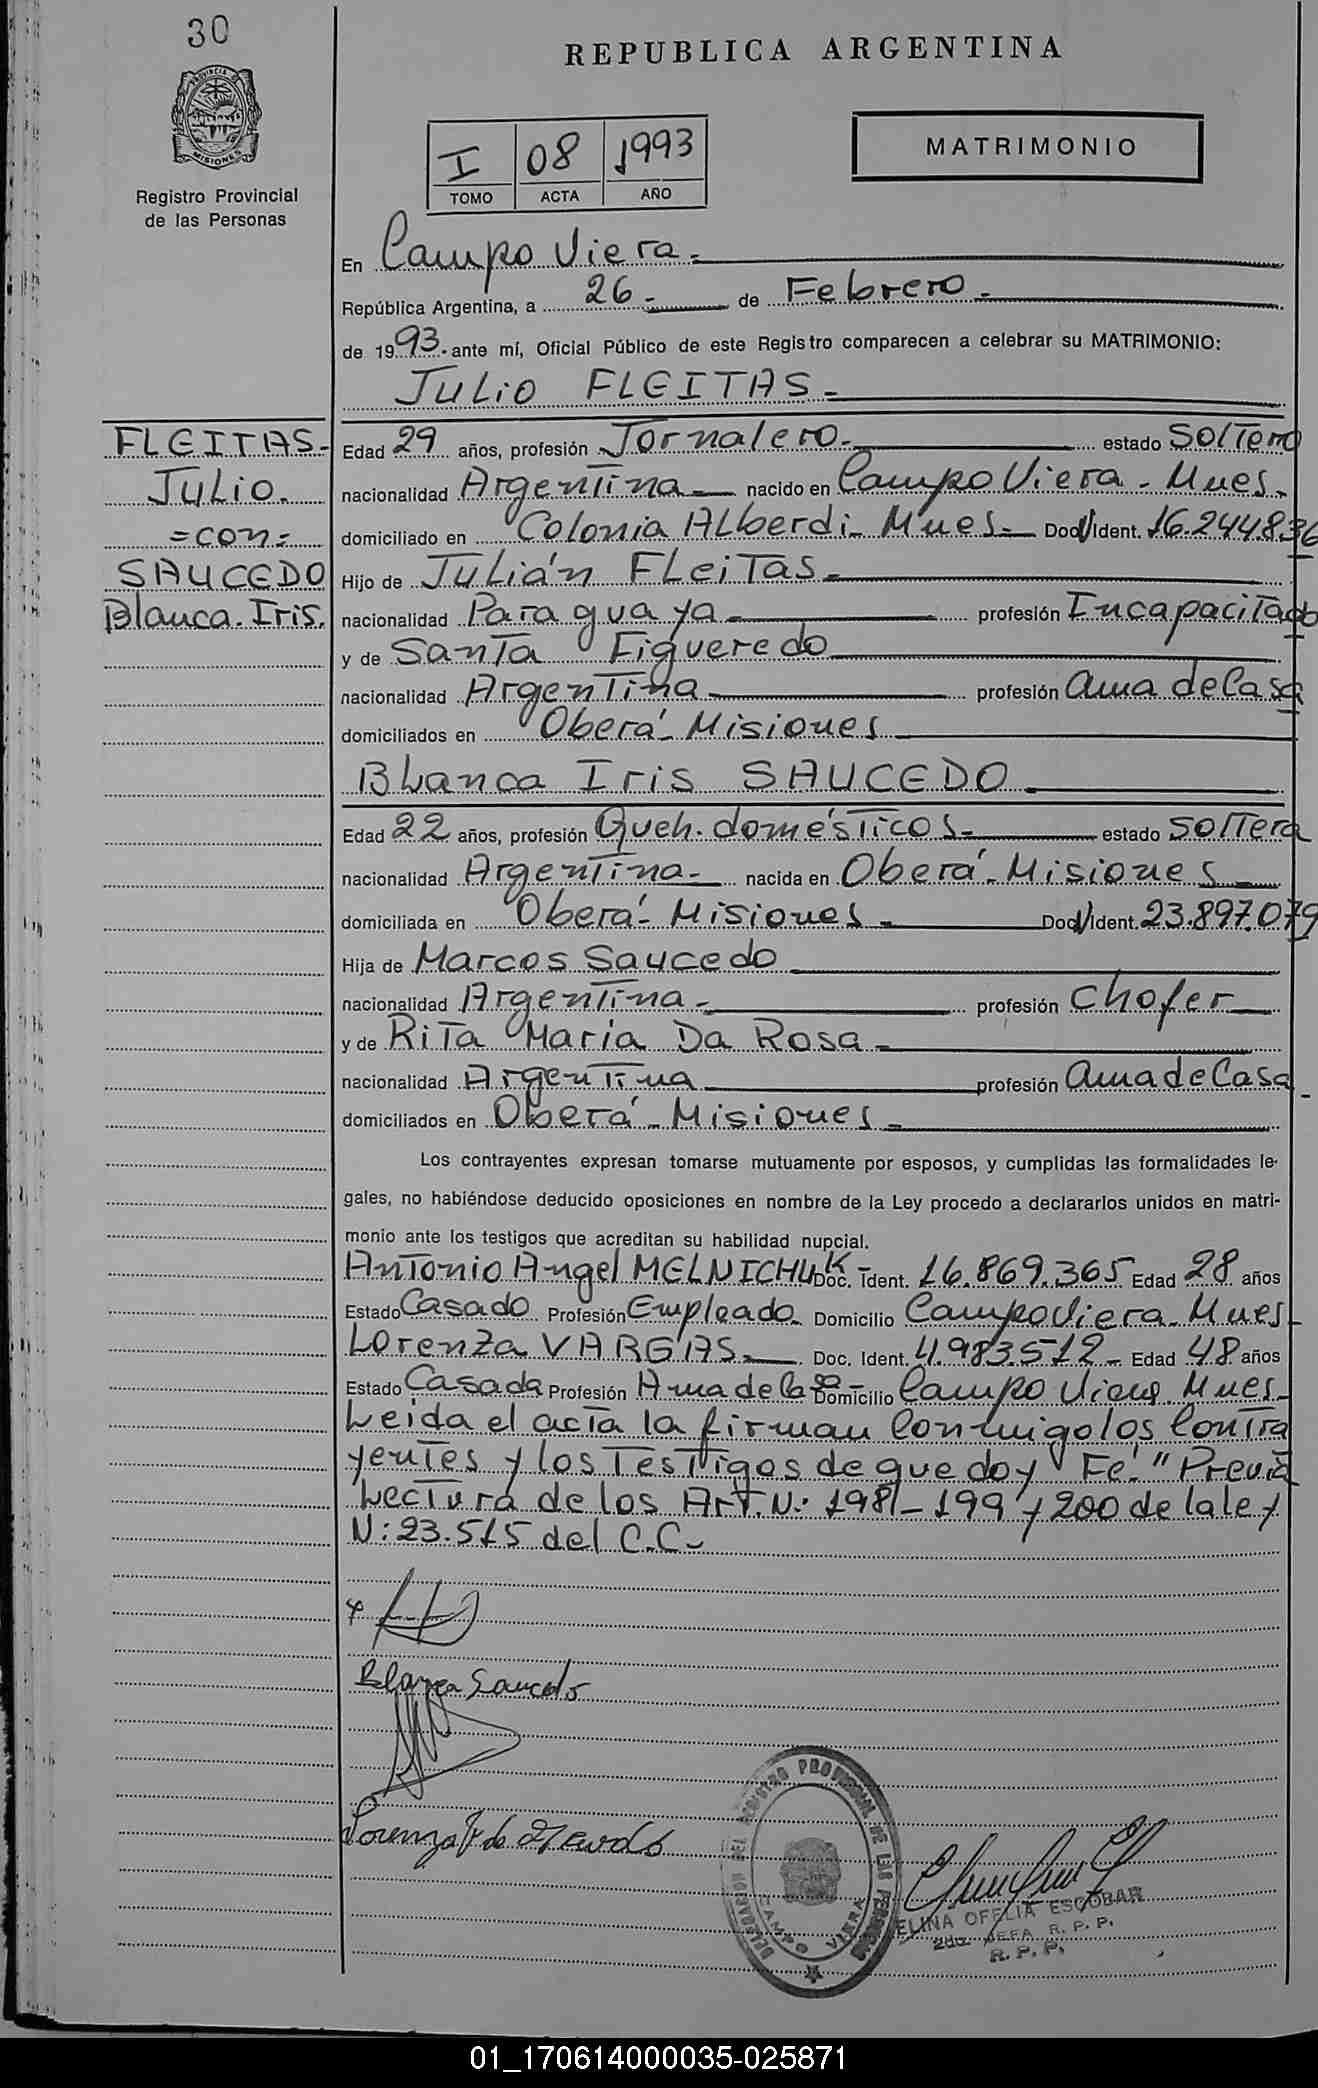 30
REPUBLICA ARGENTINA
PROVINCIA DE
MISIONES
Registro Provincial
de las Personas
I 08 1993
TOMO ACTA AÑO
MATRIMONIO
En Campo Viera.-
República Argentina, a 26.- de Febrero.-
de 1993.- ante mí, Oficial Público de este Registro comparecen a celebrar su MATRIMONIO:
JULIO FLEITAS.-
FLEITAS.-
JULIO.
=con=
SAUCEDO
Blanca. Iris.
Edad 29 años, profesión Jornalero.- estado Soltero
nacionalidad Argentina.- nacido en Campo Viera. Mnes.
domiciliado en Colonia ALberdi- Mnes.- Doc/Ident. 16.244.836
Hijo de Julián FLeiTas.-
nacionalidad Paraguaya.- profesión Incapacitado
y de SanTa Figueredo
nacionalidad Argentina profesión ama de Casa
domiciliados en Oberá- Misiones
BLanca Iris SAUCEDO.
Edad 22 años, profesión Queh. domésticos.- estado Soltera
nacionalidad Argentina.- nacida en Oberá- Misiones
domiciliada en Oberá- Misiones.- Doc/Ident. 23.897.079
Hija de Marcos Saucedo
nacionalidad Argentina.- profesión Chofer
y de RiTa Maria Da Rosa.-
nacionalidad Argentina profesión ama de Casa.
domiciliados en Oberá- Misiones.-
Los contrayentes expresan tomarse mutuamente por esposos, y cumplidas las formalidades le-
gales, no habiéndose deducido oposiciones en nombre de la Ley procedo a declararlos unidos en matri-
monio ante los testigos que acreditan su habilidad nupcial.
Antonio Angel MELNICHUK- Doc. Ident. 16.869.365 Edad 28 años
Estado Casado Profesión Empleado. Domicilio Campo Viera. Mnes
Lorenza VARGAS.- Doc. Ident. 4.983.512- Edad 48 años
Estado Casada Profesión Ama de Casa- Domicilio Campo Viera. Mnes.
Leida el acta la firman Conmigo los Contra
yentes y los Testigos de que doy Fé." Previa
Lectura de los Art. N: 198-199 y 200 de la ley
N: 23.515 del C.C.-
Blanca Saucedo
Lorenza V de
DELEGACION DEL REGISTRO PROVINCIAL DE LAS PERSONAS
CAMPO VIERA
ELINA OFELIA ESCOBAR
2da. JEFA R. P. P.
R. P. P.
01_170614000035-025871